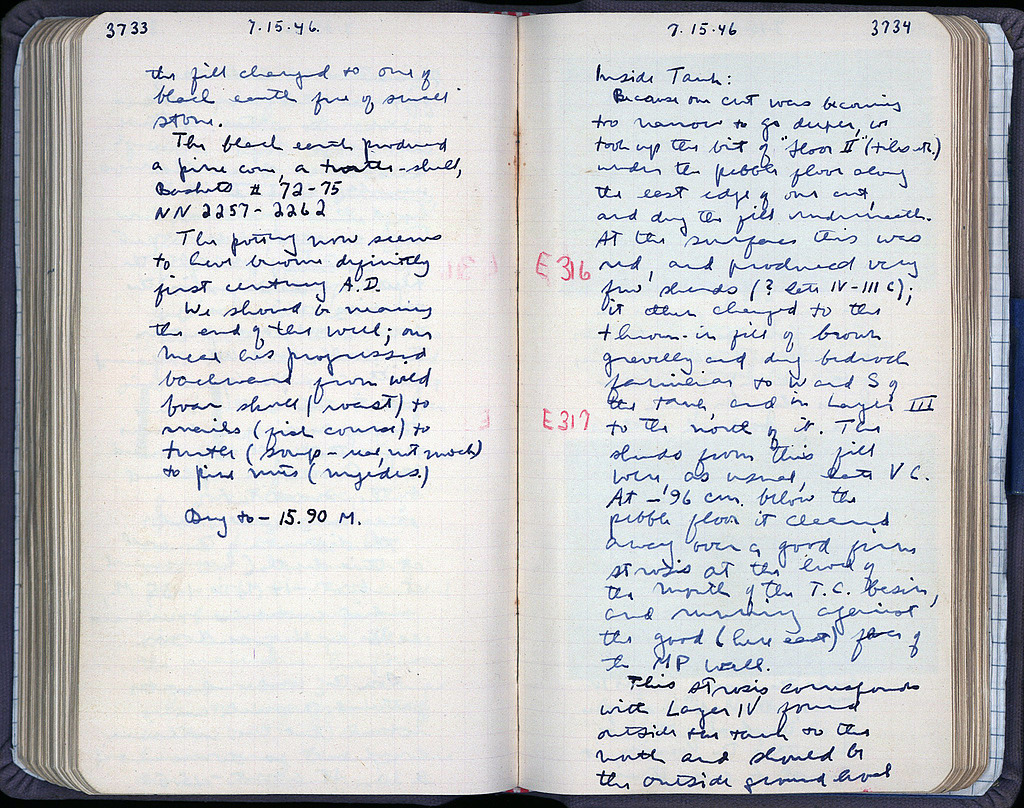 3733 7.15.46.
the fill changed to one of
black earth free of small
stone.
The black earth produced
a pine cone, a turtle-shell,
Baskets # 72-75
NN 2257-2262
The pottery now seems
to have become definitely
first century A.D.
We should be nearing
the end of this well; our
meal has progressed
backward from wild
boar skull (roast) to
snails (fish course) to
turtle (soup - real, not mock)
to pine nuts (orgeides.)
Dug to - 15.90 M.
7.15.46 3734
Inside Tank:
Because our cut was becoming
too narrow to go deeper, we
took up the bit of "floor II" (tiles etc.)
under the pebble floor along
the east edge of our cut,
and dug the fill underneath.
At the surface this was
red, and produced very
E 316
few sherds (? late IV-III C);
it then changed to the
thrown-in fill of brown
gravelly and dug bedrock
familiar to W and S of
the tank, and in Layer III
E 317
to the north of it. The
sherds from this fill
were, as usual, late V C.
At -'96 cm. below the
pebble floor it cleaned
away over a good firm
strosis at the level of
the mouth of the T.C. basin,
and running against
the good (here east) face of
the MP wall.
This strosis corresponds
with Layer IV found
outside the tank to the
north and should be
the outside ground level